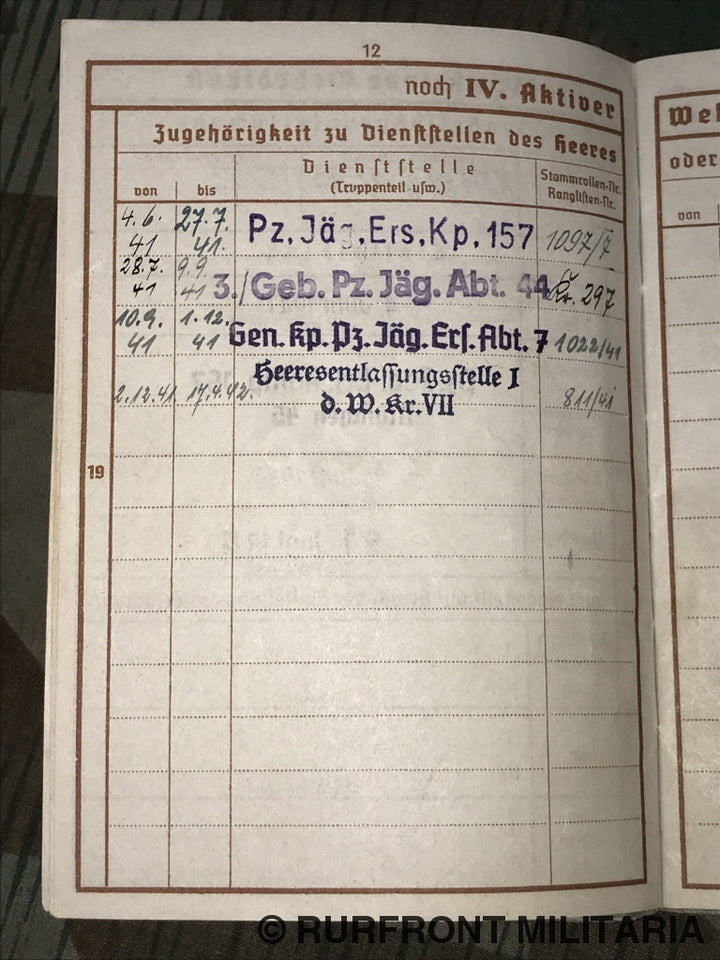 12
noch IV. Aktiver
Zugehörigkeit zu Dienststellen des Heeres
Dienststelle
(Truppenteil usw.)
Stammrollen-Nr.
Ranglisten-Nr.
von bis
4.6. 41 27.7. 41. Pz. Jäg. Ers. Kp. 157 1097/7
28.7. 41 9.9. 41 3./Geb. Pz. Jäg. Abt. 44 Kr. 297
10.9. 41 1.12. 41 Gen. Kp. Pz. Jäg. Ers. Abt. 7 1022/41
2.12.41. 17.4.42. Heeresentlassungsstelle I
d. W. Kr. VII 811/41
19
Weh
oder
von
© RURFRONT MILITARIA